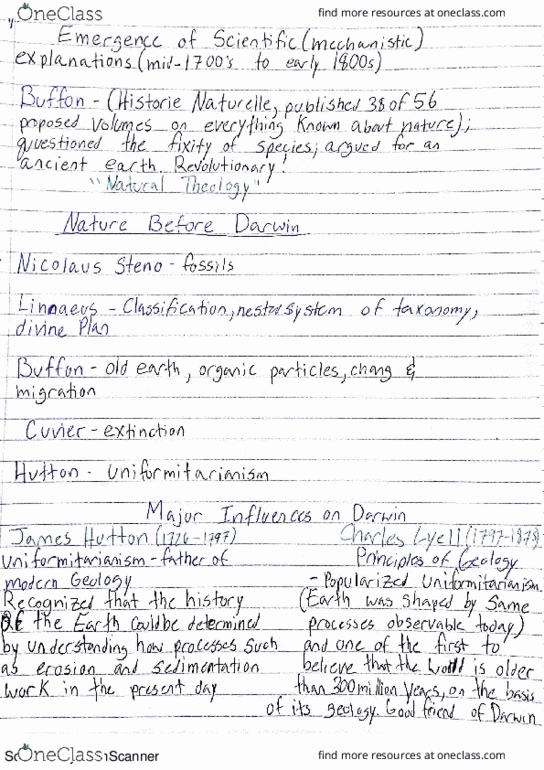 OneClass find more resources at oneclass.com
Emergence of Scientific (mechanistic)
explanations (mid-1700's to early 1800s)
Buffon - (Historie Naturelle, published 38 of 56
proposed volumes on everything known about nature);
questioned the fixity of species; argued for an
ancient earth. Revolutionary!
"Natural Theology"
Nature Before Darwin
Nicolaus Steno - fossils
Linnaeus - Classification, nested system of taxonomy,
divine Plan
Buffon - old earth, organic particles, chang &
migration
Cuvier - extinction
Hutton - uniformitarianism
Major Influences on Darwin
James Hutton (1726-1797)
uniformitarianism - father of
modern Geology
Recognized that the history
of the Earth could be determined
by understanding how processes such
as erosion and sedimentation
work in the present day
Charles Lyell (1797-1875)
Principles of Geology
- Popularized Uniformitarianism
(Earth was shaped by same
processes observable today)
and one of the first to
believe that the world is older
than 300 million years, on the basis
of its geology. Good friend of Darwin
OneClass Scanner find more resources at oneclass.com